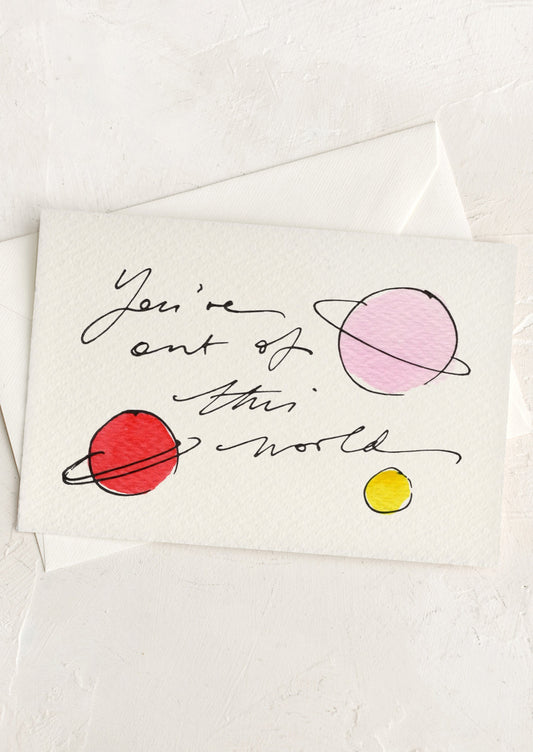 You're
out of
this
world